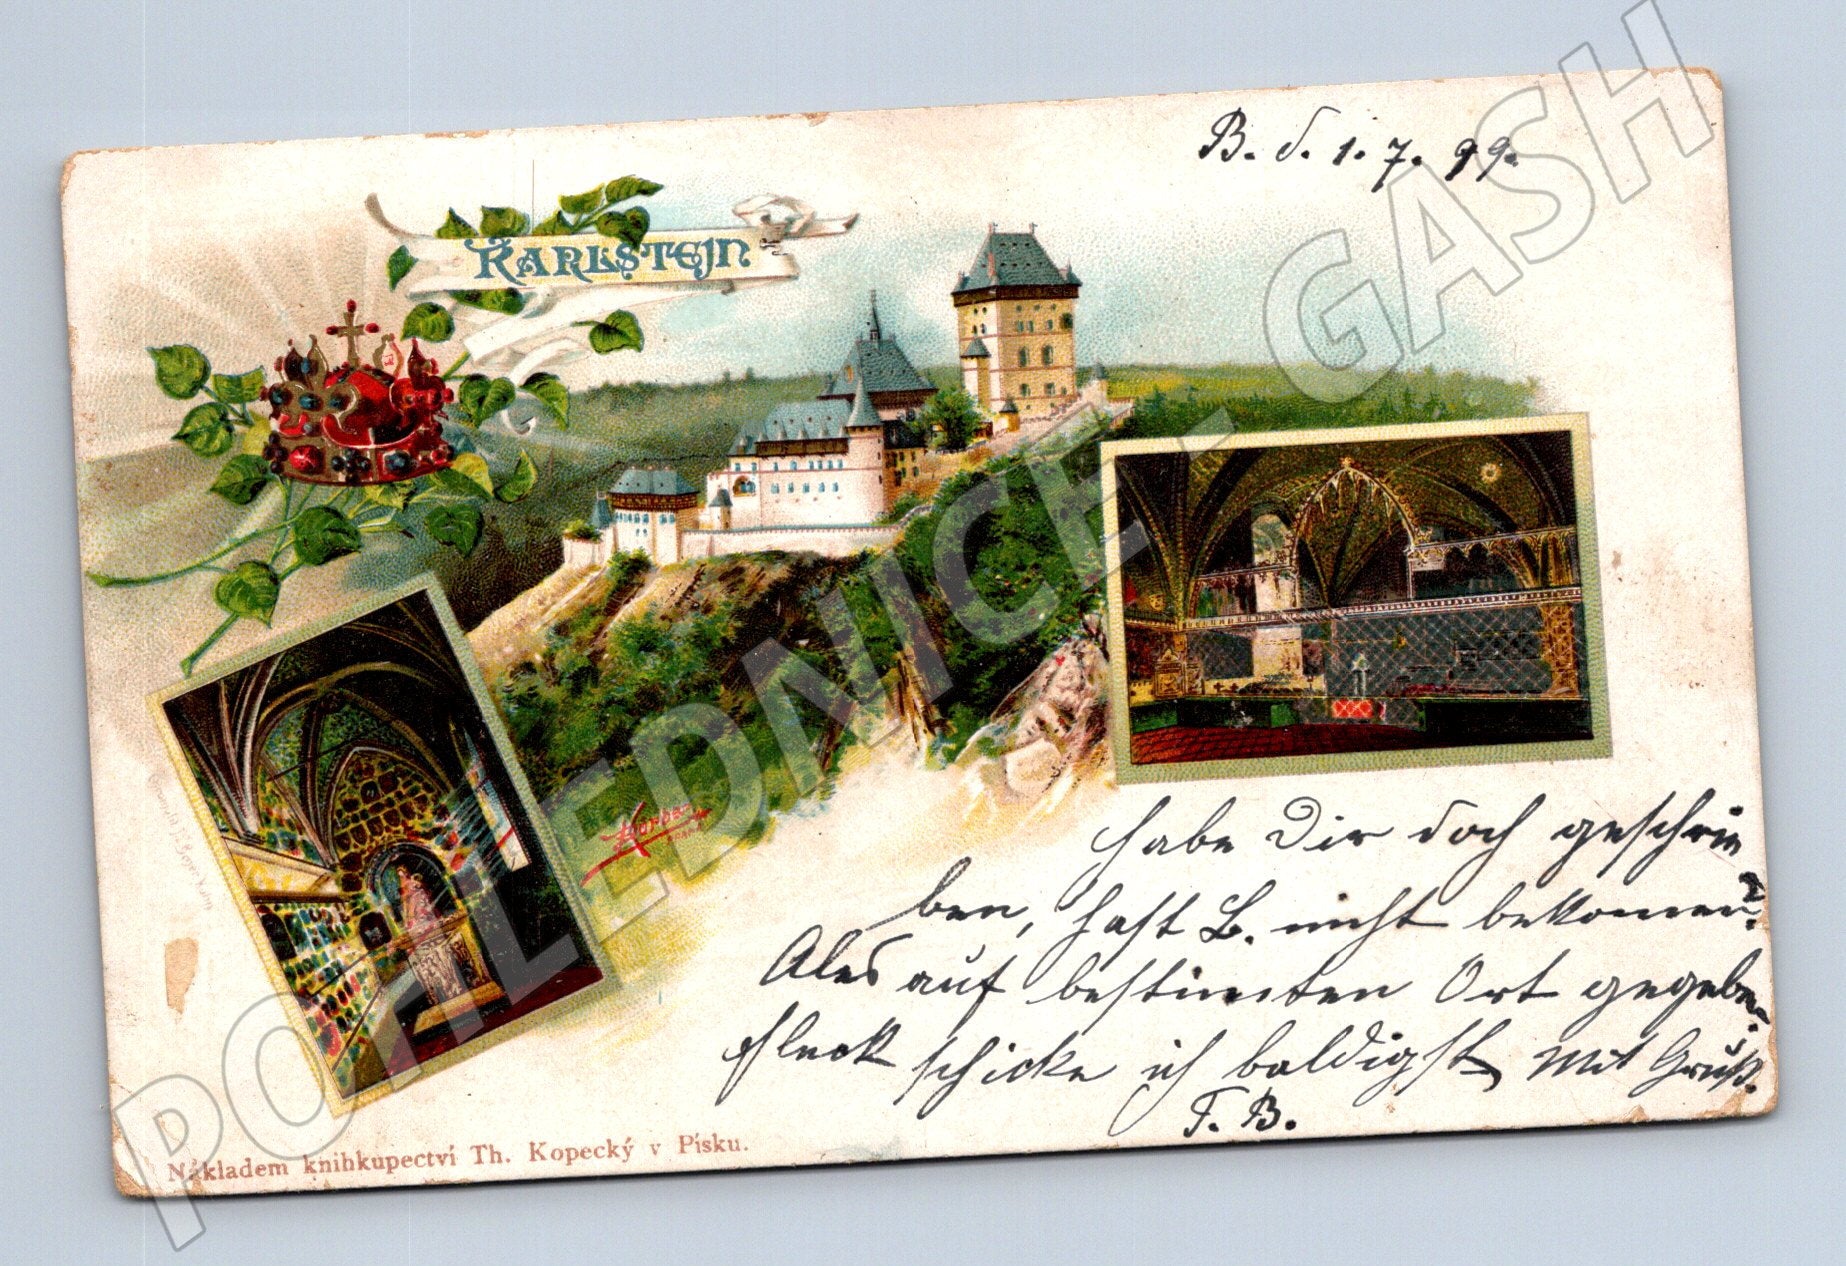 B. d. 1. 7. 99.
KARLSTEJN
habe Dir doch geschrie
ben, hast B. nicht bekommen?
Alles auf bestimmten Ort gegeben.
schicke ich baldigst, Mit Gruß.
F. B.
Nákladem knihkupectví Th. Kopecký v Písku.
POHLEDNICE-GASH